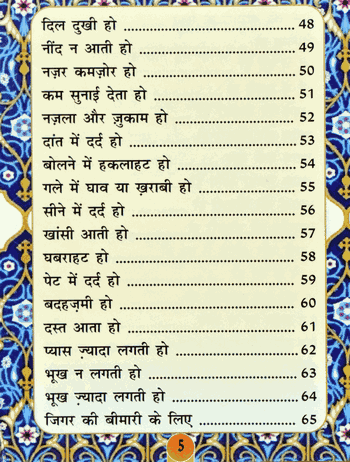 दिल दुखी हो ........................................ 48
नींद न आती हो ........................................ 49
नज़र कमज़ोर हो ........................................ 50
कम सुनाई देता हो ........................................ 51
नज़ला और ज़ुकाम हो ........................................ 52
दांत में दर्द हो ........................................ 53
बोलने में हकलाहट हो ........................................ 54
गले में घाव या ख़राबी हो ........................................ 55
सीने में दर्द हो ........................................ 56
खांसी आती हो ........................................ 57
घबराहट हो ........................................ 58
पेट में दर्द हो ........................................ 59
बदहज़मी हो ........................................ 60
दस्त आता हो ........................................ 61
प्यास ज़्यादा लगती हो ........................................ 62
भूख न लगती हो ........................................ 63
भूख ज़्यादा लगती हो ........................................ 64
जिगर की बीमारी के लिए ........................................ 65
5